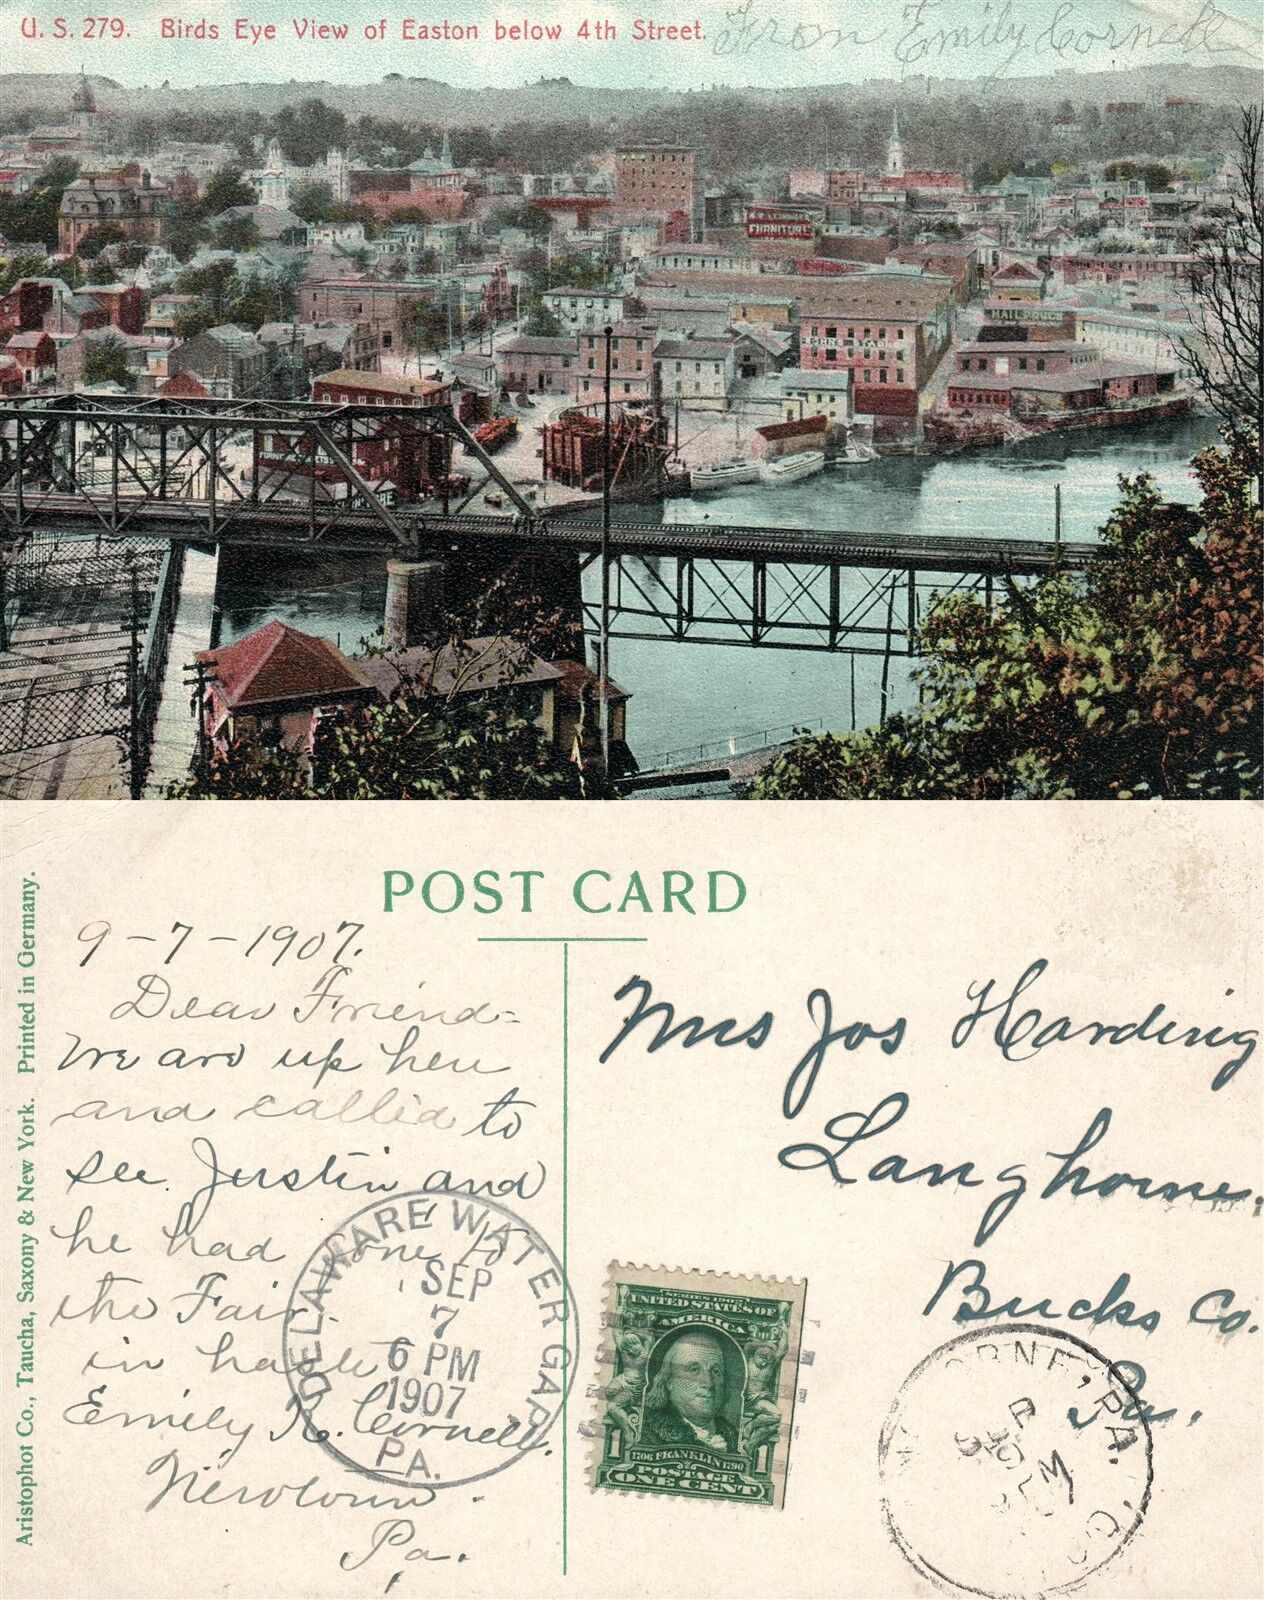 U. S. 279. Birds Eye View of Easton below 4th Street.
From Emily Cornell
FURNITURE
MAIL POUCH
POST CARD
Aristophot Co., Taucha, Saxony & New York. Printed in Germany.
9-7-1907.
Dear Friend-
We are up here
and called to
see Justin and
he had gone to
the Fair.
in haste
Emily K. Cornell.
Newtown.
Pa.
Mrs Jos Harding
Langhorne.
Bucks Co.
Pa.
DELAWARE WATER GAP,
SEP
7
6 PM
1907
PA.
SERIES 1902
UNITED STATES OF
AMERICA
1 1706 FRANKLIN 1790 1
POSTAGE
ONE CENT